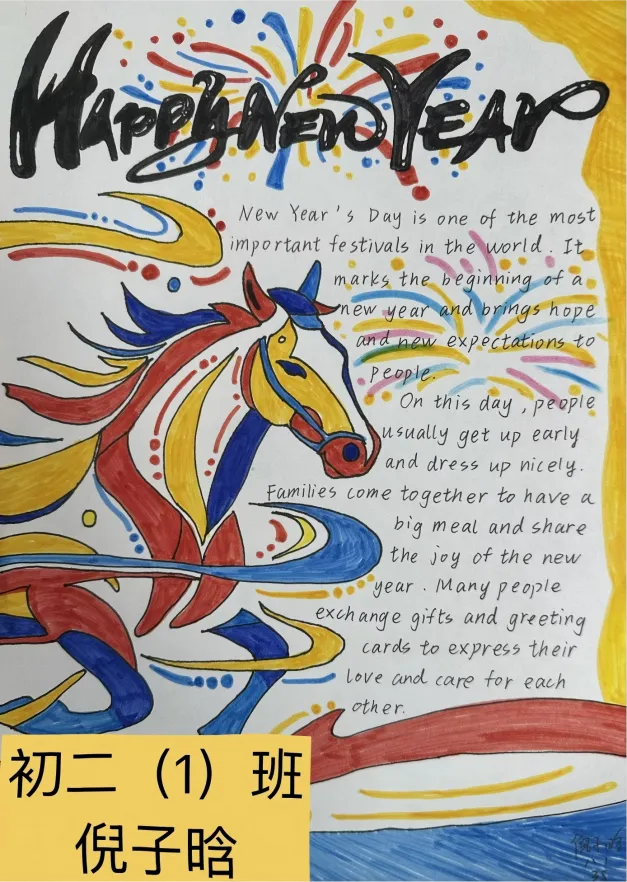 HAPPY NEW YEAR
New Year's Day is one of the most
important festivals in the world. It
marks the beginning of a
new year and brings hope
and new expectations to
people.
On this day, people
usually get up early
and dress up nicely.
Families come together to have a
big meal and share
the joy of the new
year. Many people
exchange gifts and greeting
cards to express their
love and care for each
other.
初二（1）班
倪子晗